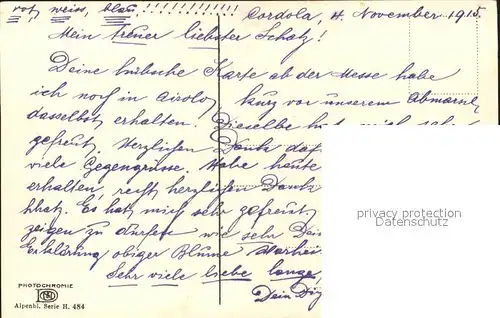 rot, weiss, blau !!!!!!!!!!!!
Cordola, 4. November 1915.
Mein treuer liebster Schatz!
Deine hübsche Karte ab der Messe habe
ich noch in Airolo, kurz vor unserem Abmarsch
daselbst erhalten. Dieselbe hat mich sehr
gefreut. Herzlichen Dank dafür
viele Gegengrüsse. Habe heute
erhalten, recht herzlichen Dank
Es hat mich sehr gefreut,
zeigen zu dürfen wie sehr Dein
Erklärung obiger Blume
Sehr viele liebe lange,
Dein
privacy protection
Datenschutz
PHOTOCHROMIE
Alpenbl. Serie H. 484